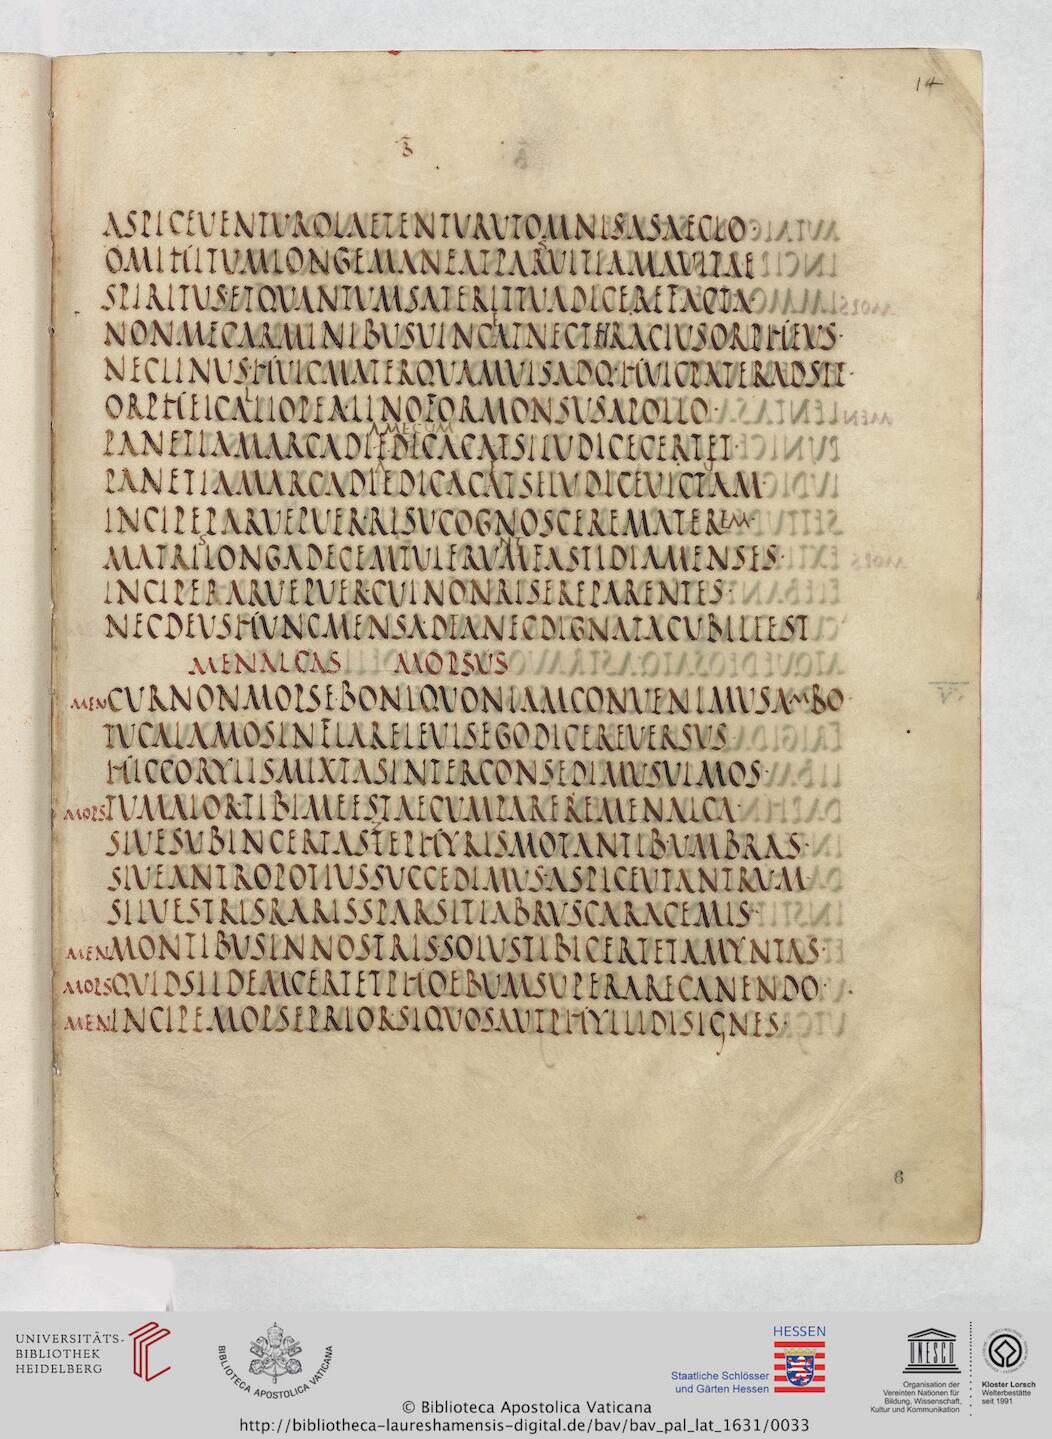 14
ASPICEVENTVROLAETENTVRVTOMNISASAECLO
OMIHITVMLONGEMANEATPARVITIAMAVITAE
SPIRITVSETQVANTVMSATERITTVADICEREFACTA
NONMECARMINIBVSVINCATNECTHRACIVSORPHEVS·
NECLINVS·HVICMATERQVAMVISADQ·HVICPATERADSIT·
ORPHEICALIOPEA·LINOFORMONSVSAPOLLO·
AMECUM
PANETIAMARCADIEDICACATSIIVDICECERTET·
PANETIAMARCADIEDICACATSEIVDICEVICTAM·
INCIPEPARVEPVERRISVCOGNOSCEREMATEREM·
MATRILONGADECEMTVLERVMFASTIDIAMENSES·
INCIPEPARVEPVERCVINONRISEREPARENTES·
NECDEVSHVNCMENSADEANECDIGNATACVBILEEST
MENALCAS MOPSVS
MEN CVRNONMOPSEBONIQVONIAMCONVENIMVSAMBO·
TVCALAMOSINFLARELEVISEGODICEREVERSVS
HICCORYLISMIXTASINTERCONSEDIMVSVLMOS·
MOPS TVMAIORTIBIMEESTAECVMPAREREMENALCA·
SIVESVBINCERTASZEPHYRISMOTANTIBVMBRAS·
SIVEANTROPOTIVSSVCCEDIMVS·ASPICEVTANTRVM·
SILVESTRISRARISSPARSITLABRVSCARACEMIS·
MEN MONTIBVSINNOSTRISSOLVSTIBICERTETAMYNTAS·
MOPS QVIDSIIDEMCERTETPHOEBVMSVPERARECANENDO·
MEN INCIPEMOPSEPRIORSIQVOSAVTPHYLLIDISIGNES·
6
UNIVERSITÄTS-
BIBLIOTHEK
HEIDELBERG
BIBLIOTECA APOSTOLICA VATICANA
HESSEN
Staatliche Schlösser
und Gärten Hessen
UNESCO
Organisation der
Vereinten Nationen für
Bildung, Wissenschaft,
Kultur und Kommunikation
Kloster Lorsch
Welterbestätte
seit 1991
© Biblioteca Apostolica Vaticana
http://bibliotheca-laureshamensis-digital.de/bav/bav_pal_lat_1631/0033